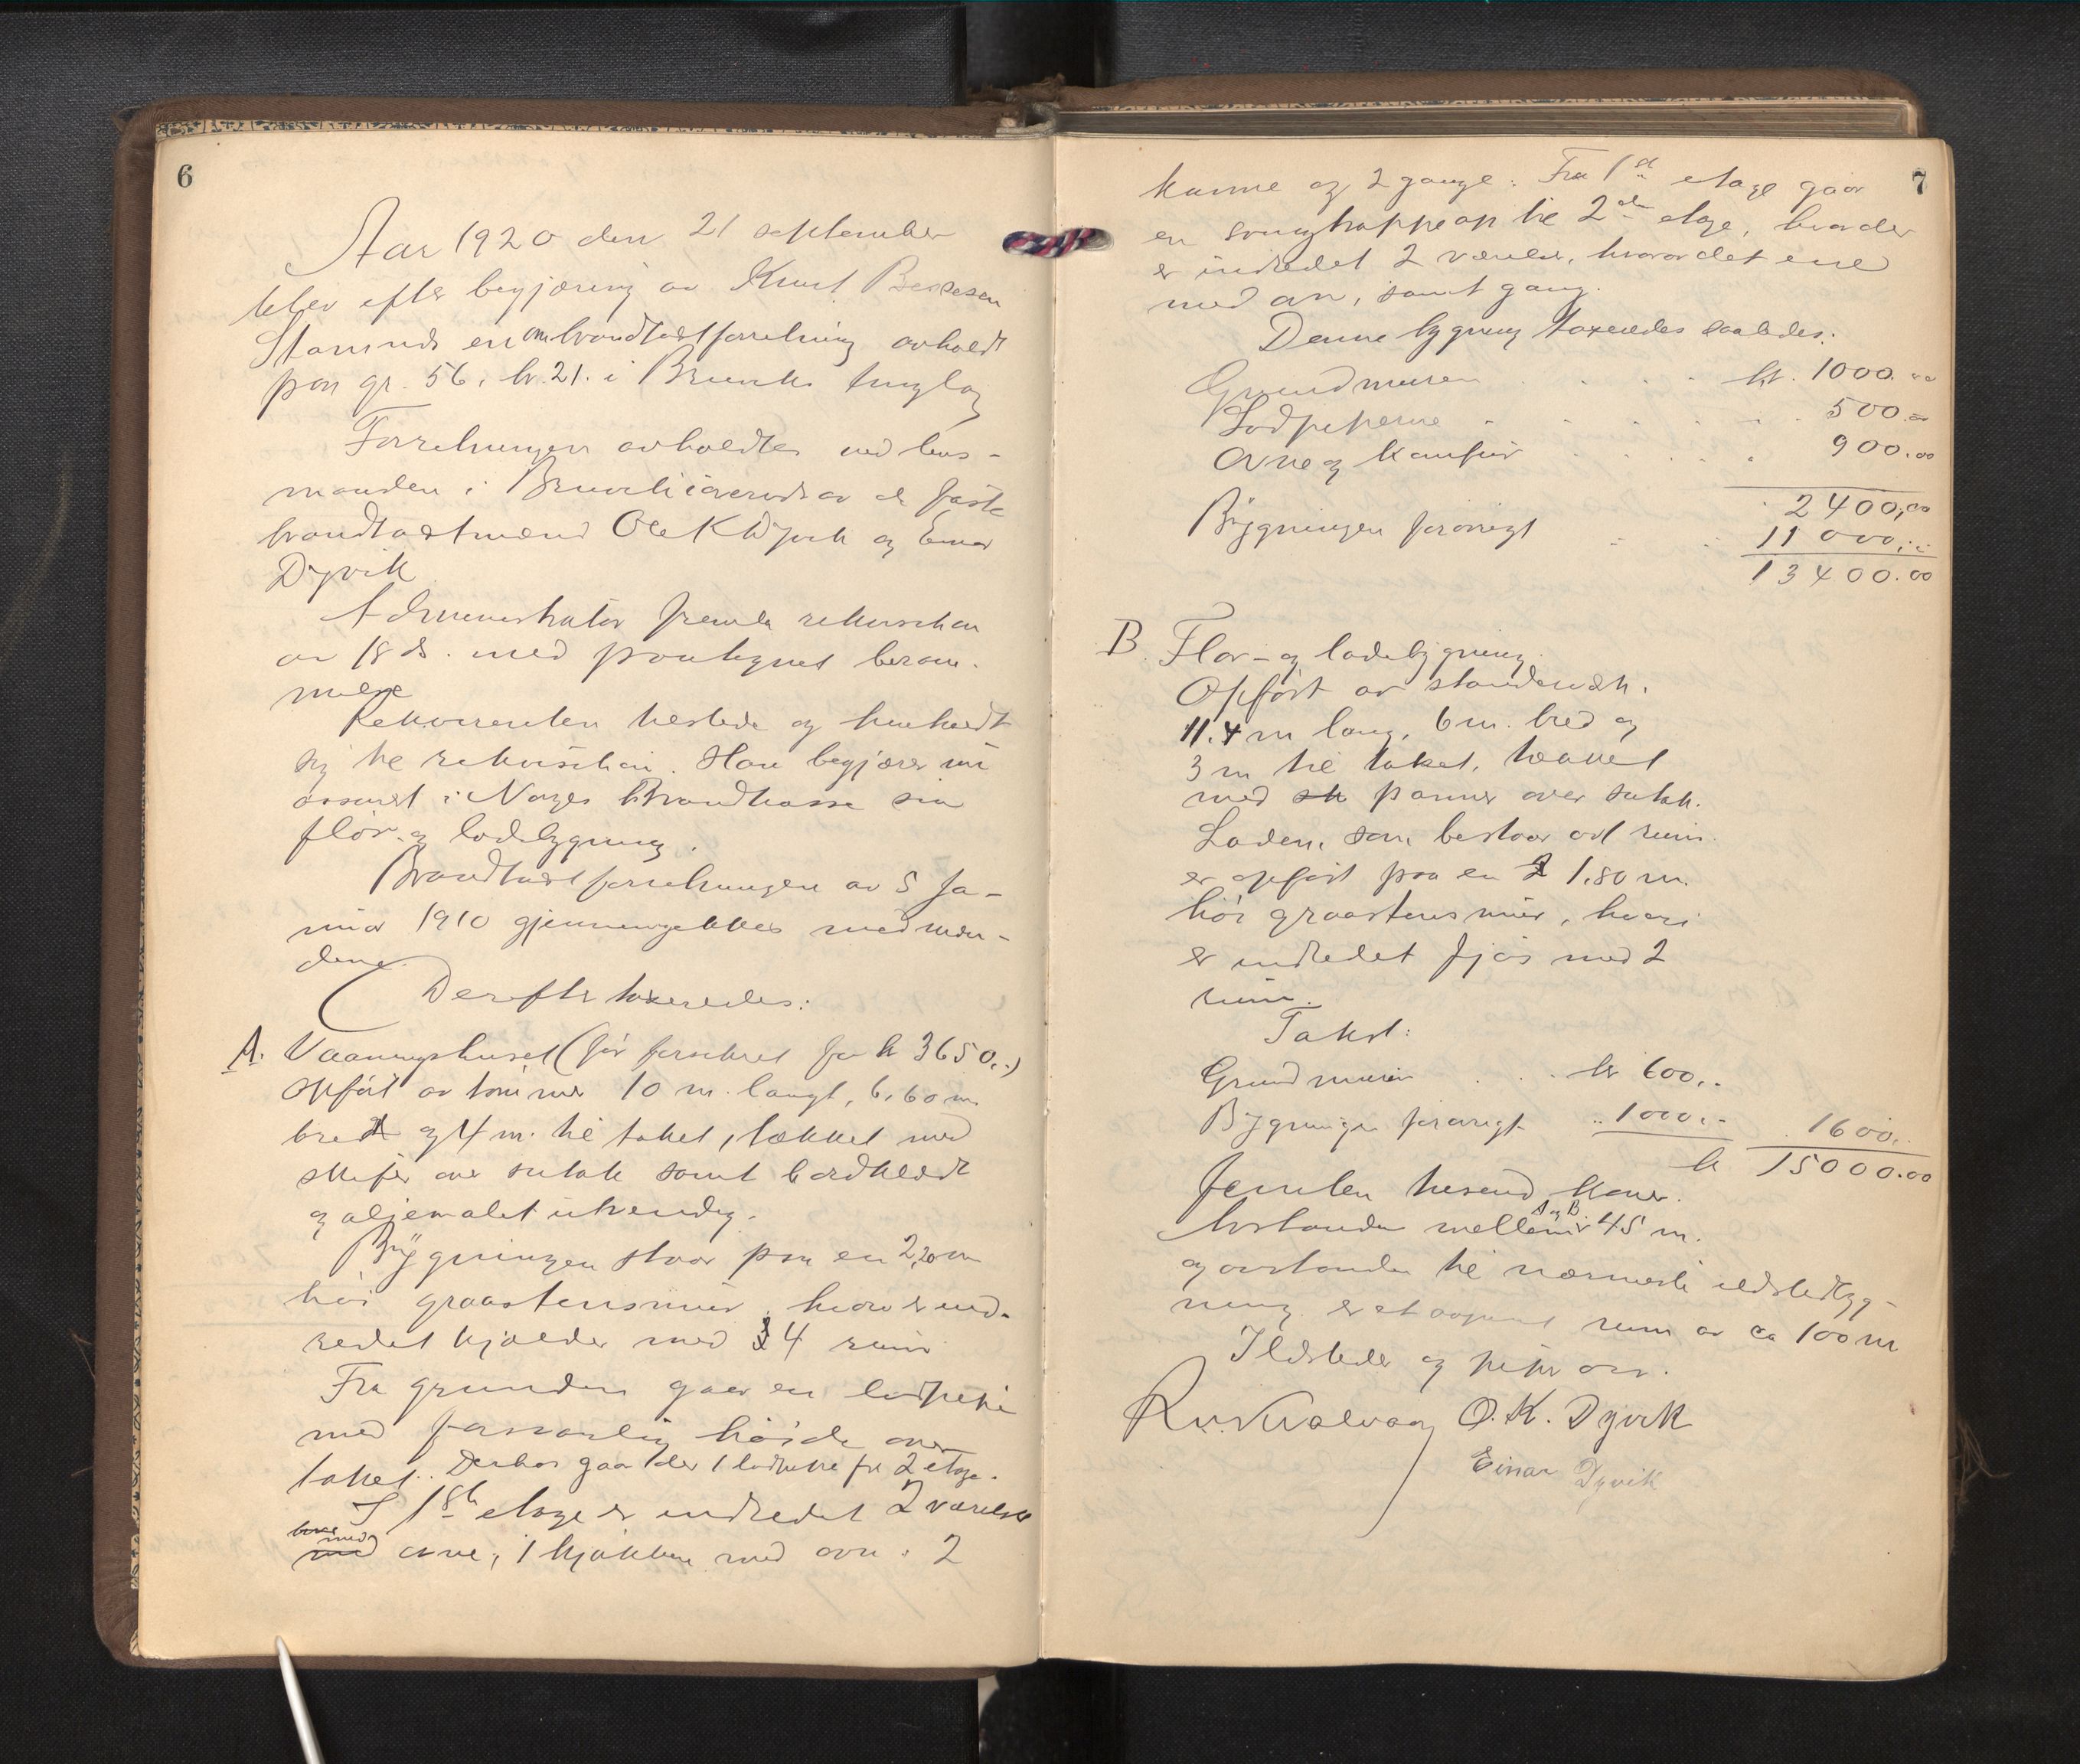 6
Aar 1920 den 21 september
blev efter begjæring av Knut Bessesen
Stamnes en ombrandtakstforretning avholdt
paa gr. 56, br. 21. i Bruvik tinglag
Forretningen avholdtes ved lens-
manden i Bruvik av de faste
brandtakstmænd Ole K Dyvik og Einar
Dyvik
Administrator fremla rekvisition
av 18 ds. med paategnet beram-
melse
Rekvirenten tilstede og henholdt
sig til rekvisition. Han begjærer nu
assuert i Norges Brandkasse sin
flor- og ladebygning.
Brandtakstforretningen av 5 Ja-
nuar 1910 gjennemgikkes med mæn-
dene.
Derefter taxeredes:
A. Vaaningshuset (før forsikret for kr 3650,-)
opført av tømmer 10 m. langt, 6,60 m
bredt og 4 m. til taket, tækket med
skifer over sutak samt bordklædt
og oljemalet utvendig.
Bygningen staar paa en 2,20 m
høi graastensmur, hvori er ind-
redet kjælder med 4 rum
Fra grunden gaar en lodpipe
med forsvarlig høide over
taket. Derhos gaar der 1 lodpipe fra 2 etage.
I 1ste etage er indredet 2 værelser
begge med ovne, 1 kjøkken med ovn, 2
7
kamre og 2 gange. Fra 1ste etage gaar
en svingtrappe op til 2den etage, hvor der
er indredet 2 værelser, hvorav det ene
med ovn, samt gang.
Denne bygning taxeredes saaledes:
Grundmuren . . . . kr. 1000.00
Lodpiperne . . . . . 500.00
Ovne og komfur . . . . 900.00
2400,00
Bygningen forøvrigt . . 11000,00
13400.00
B. Flor- og ladebygning.
Opført av stenderverk.
11.4 m lang, 6 m. bred og
3 m til taket, tækket
med panner over sutak.
Laden, som bestaar av 1 rum
er opført paa en 1.80 m.
høi graastens mur, hvori
er indredet fjøs med 2
rum.
Takst:
Grundmuren . . . kr 600,-
Bygningen forøvrigt .. 1000,- 1600,-
kr 15000.00
Femten tusend kroner.
Avstanden mellem A og B er 45 m.
og avstanden til nærmeste ildstedbyg-
ning er et aapent rum av ca 100 m
Ildsteder og piper i orden.
O. K. Dyvik
Einar Dyvik